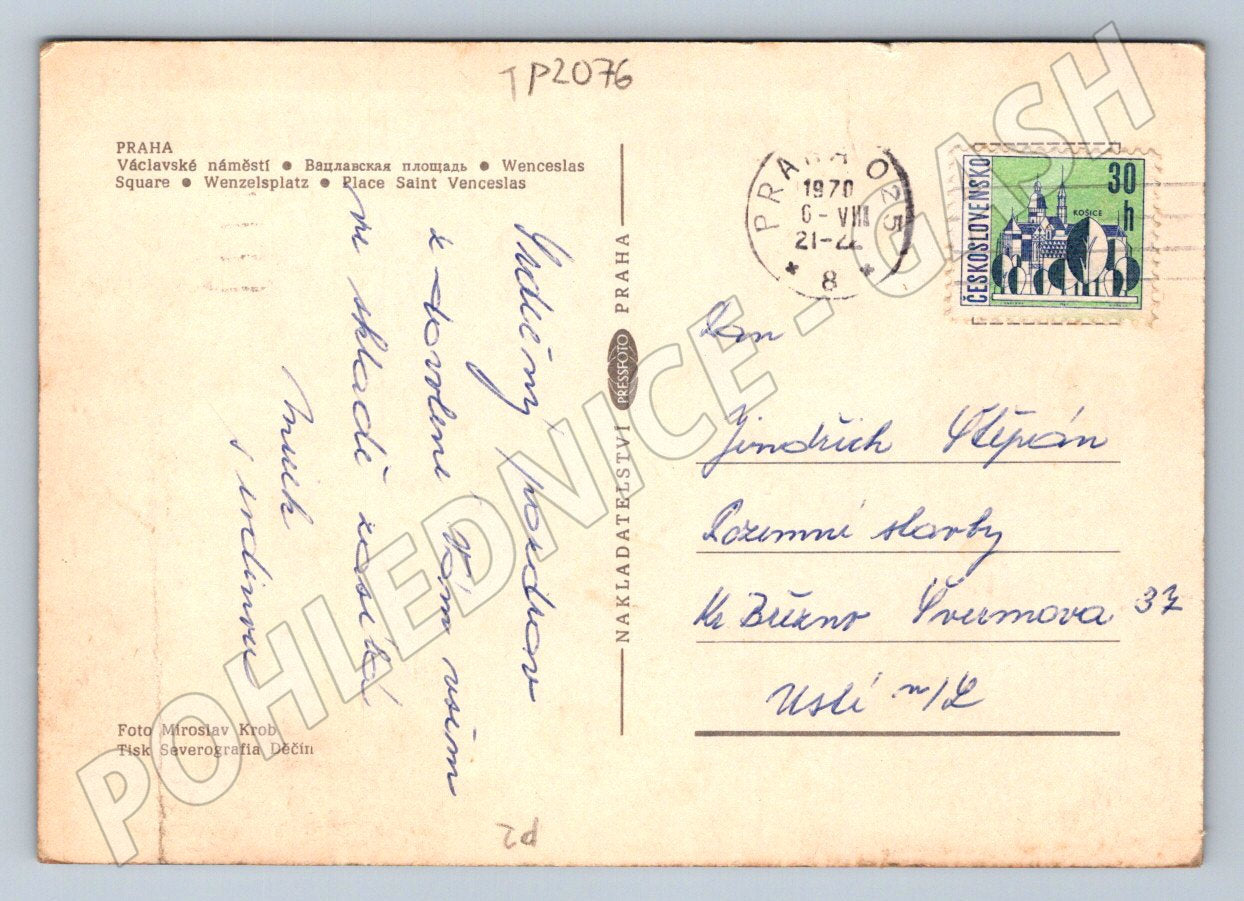 TP2076
PRAHA
Václavské náměstí ● Вацлавская площадь ● Wenceslas
Square ● Wenzelsplatz ● Place Saint Venceslas
Srdečný pozdrav
z dovolené Vám všem
ve skladě zasílá
s rodinou
NAKLADATELSTVÍ PRESSFOTO PRAHA
PRAHA 025
1970
6-VIII
21-22
8
ČESKOSLOVENSKO
30
h
KOŠICE
Pan
Jindřich Štěpán
Pozemní stavby
Kr Březno Švermova 37
Ustí n/L
Foto Miroslav Krob
Tisk Severografia Děčín
P2
POHLEDNICE - GASH